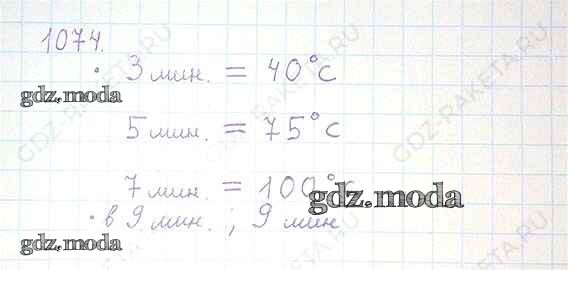 1074.
· 3 мин. = 40°С
gdz.moda
5 мин. = 75°С
7 мин. = 100°С
gdz.moda
· в 9 мин. ; 9 мин
gdz.moda
GDZ-RAKETA.RU